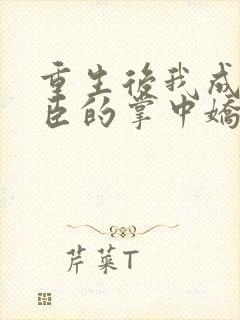 重生後我成
臣的掌中嬌
芹菜T